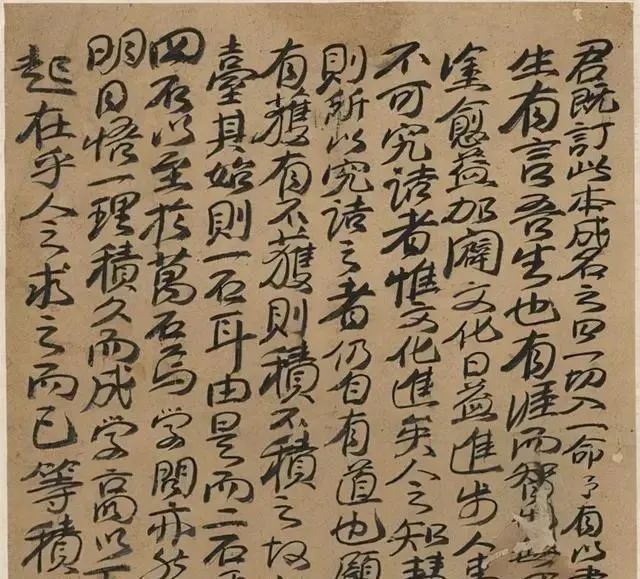 君既訂此本成名之曰一切入一命予有以書
生有言吾生也有涯而智
塗愈益加闢文化日益進步人
不可究詰者惟文化進矣人之知慧
則所以究詰之者仍自有道也願
有獲有不獲則積不積之故
臺其始則一石耳由是而二石
四石以至於萬石焉学問亦然
明日悟一理積久而成学高以下
起在乎人之求之而已等積